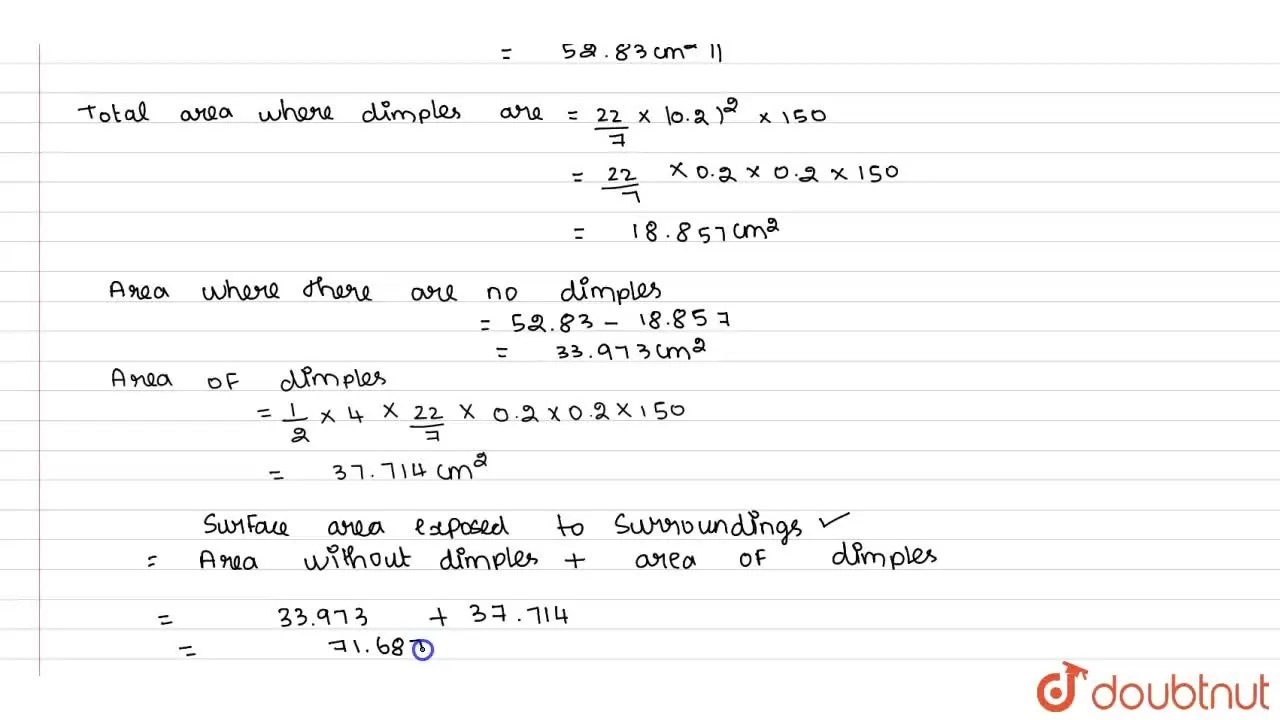 = 52.83 cm² //
Total area where dimples are = 22/7 × (0.2)² × 150
= 22/7 × 0.2 × 0.2 × 150
= 18.857 cm²
Area where there are no dimples
= 52.83 - 18.857
= 33.973 cm²
Area of dimples
= 1/2 × 4 × 22/7 × 0.2 × 0.2 × 150
= 37.714 cm²
Surface area exposed to surroundings ✓
= Area without dimples + area of dimples
= 33.973 + 37.714
= 71.687
doubtnut